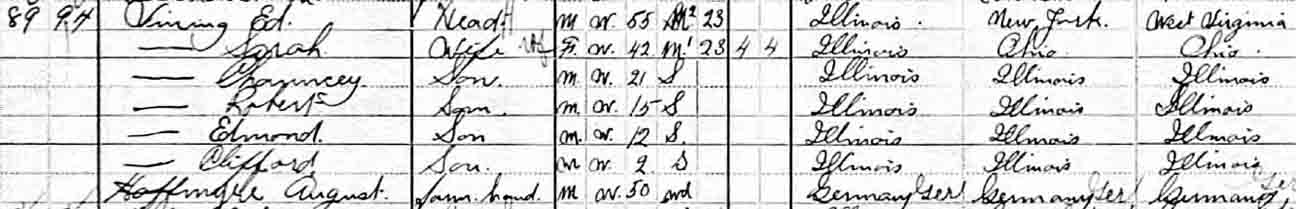 89 94 Ed. Head m W 55 M² 23 Illinois. New York. West Virginia
— Sarah Wife F. W. 42 M¹ 23 4 4 Illinois Ohio. Ohio.
— Chauncey. Son. m W. 21 S Illinois Illinois Illinois
— Robert Son. m. W. 15 S. Illinois Illinois Illinois
— Edmond. Son m. W. 12 S. Illinois Illinois Illinois
— Clifford Son. m W. 2 S Illinois Illinois Illinois
August. m W. 50 wd Germany Ger Germany Ger Germany Ger